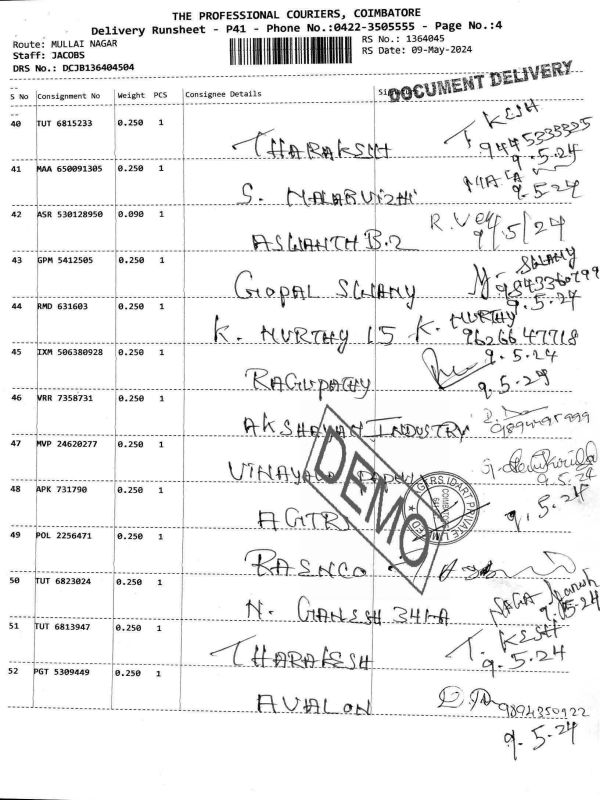 THE PROFESSIONAL COURIERS, COIMBATORE
Delivery Runsheet - P41 - Phone No.:0422-3505555 - Page No.:4
Route: MULLAI NAGAR RS No.: 1364045
Staff: JACOBS RS Date: 09-May-2024
DRS No.: DCJB136404504
DOCUMENT DELIVERY
S No Consignment No Weight PCS Consignee Details
40 TUT 6815233 0.250 1 THARAKSH T. KESH
9445333325
9.5.24
41 MAA 650091305 0.250 1 S. MALARVIZHI MALA
9.5.24
42 ASR 530128950 0.090 1 ASWANTH B.2 R.
9/5/24
43 GPM 5412505 0.250 1 GOPAL SWAMY SWAMY
9843360799
9.5.24
44 RMD 631603 0.250 1 K. MURTHY 15 K. MURTHY
9626647718
9.5.24
45 IXM 506380928 0.250 1 RAGUPATHY
9.5.24
46 VRR 7358731 0.250 1 AKSHAYAN INDUSTRY
47 MVP 24620277 0.250 1 VINAYAGA
9.5.24
48 APK 731790 0.250 1 AGTRI
9.5.24
DEMO
49 POL 2256471 0.250 1 RASNCO
50 TUT 6823024 0.250 1 N. GANESH 34LA NAGA
9.5.24
51 TUT 6813947 0.250 1 THARAKESH T. KESH
9.5.24
52 PGT 5309449 0.250 1 AVALON
9894350922
9.5.24